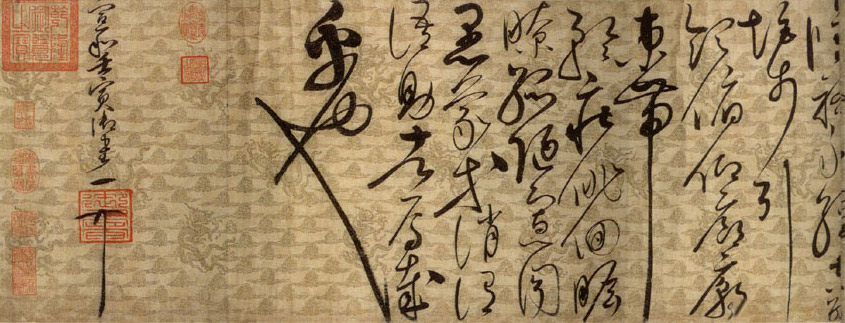 脩祜永綏吉劭
矩步引
領俯仰廊廟
束帶
矜莊徘徊瞻
眺孤陋寡聞
愚蒙等誚謂
語助者焉哉
乎也
宣和壬寅御書